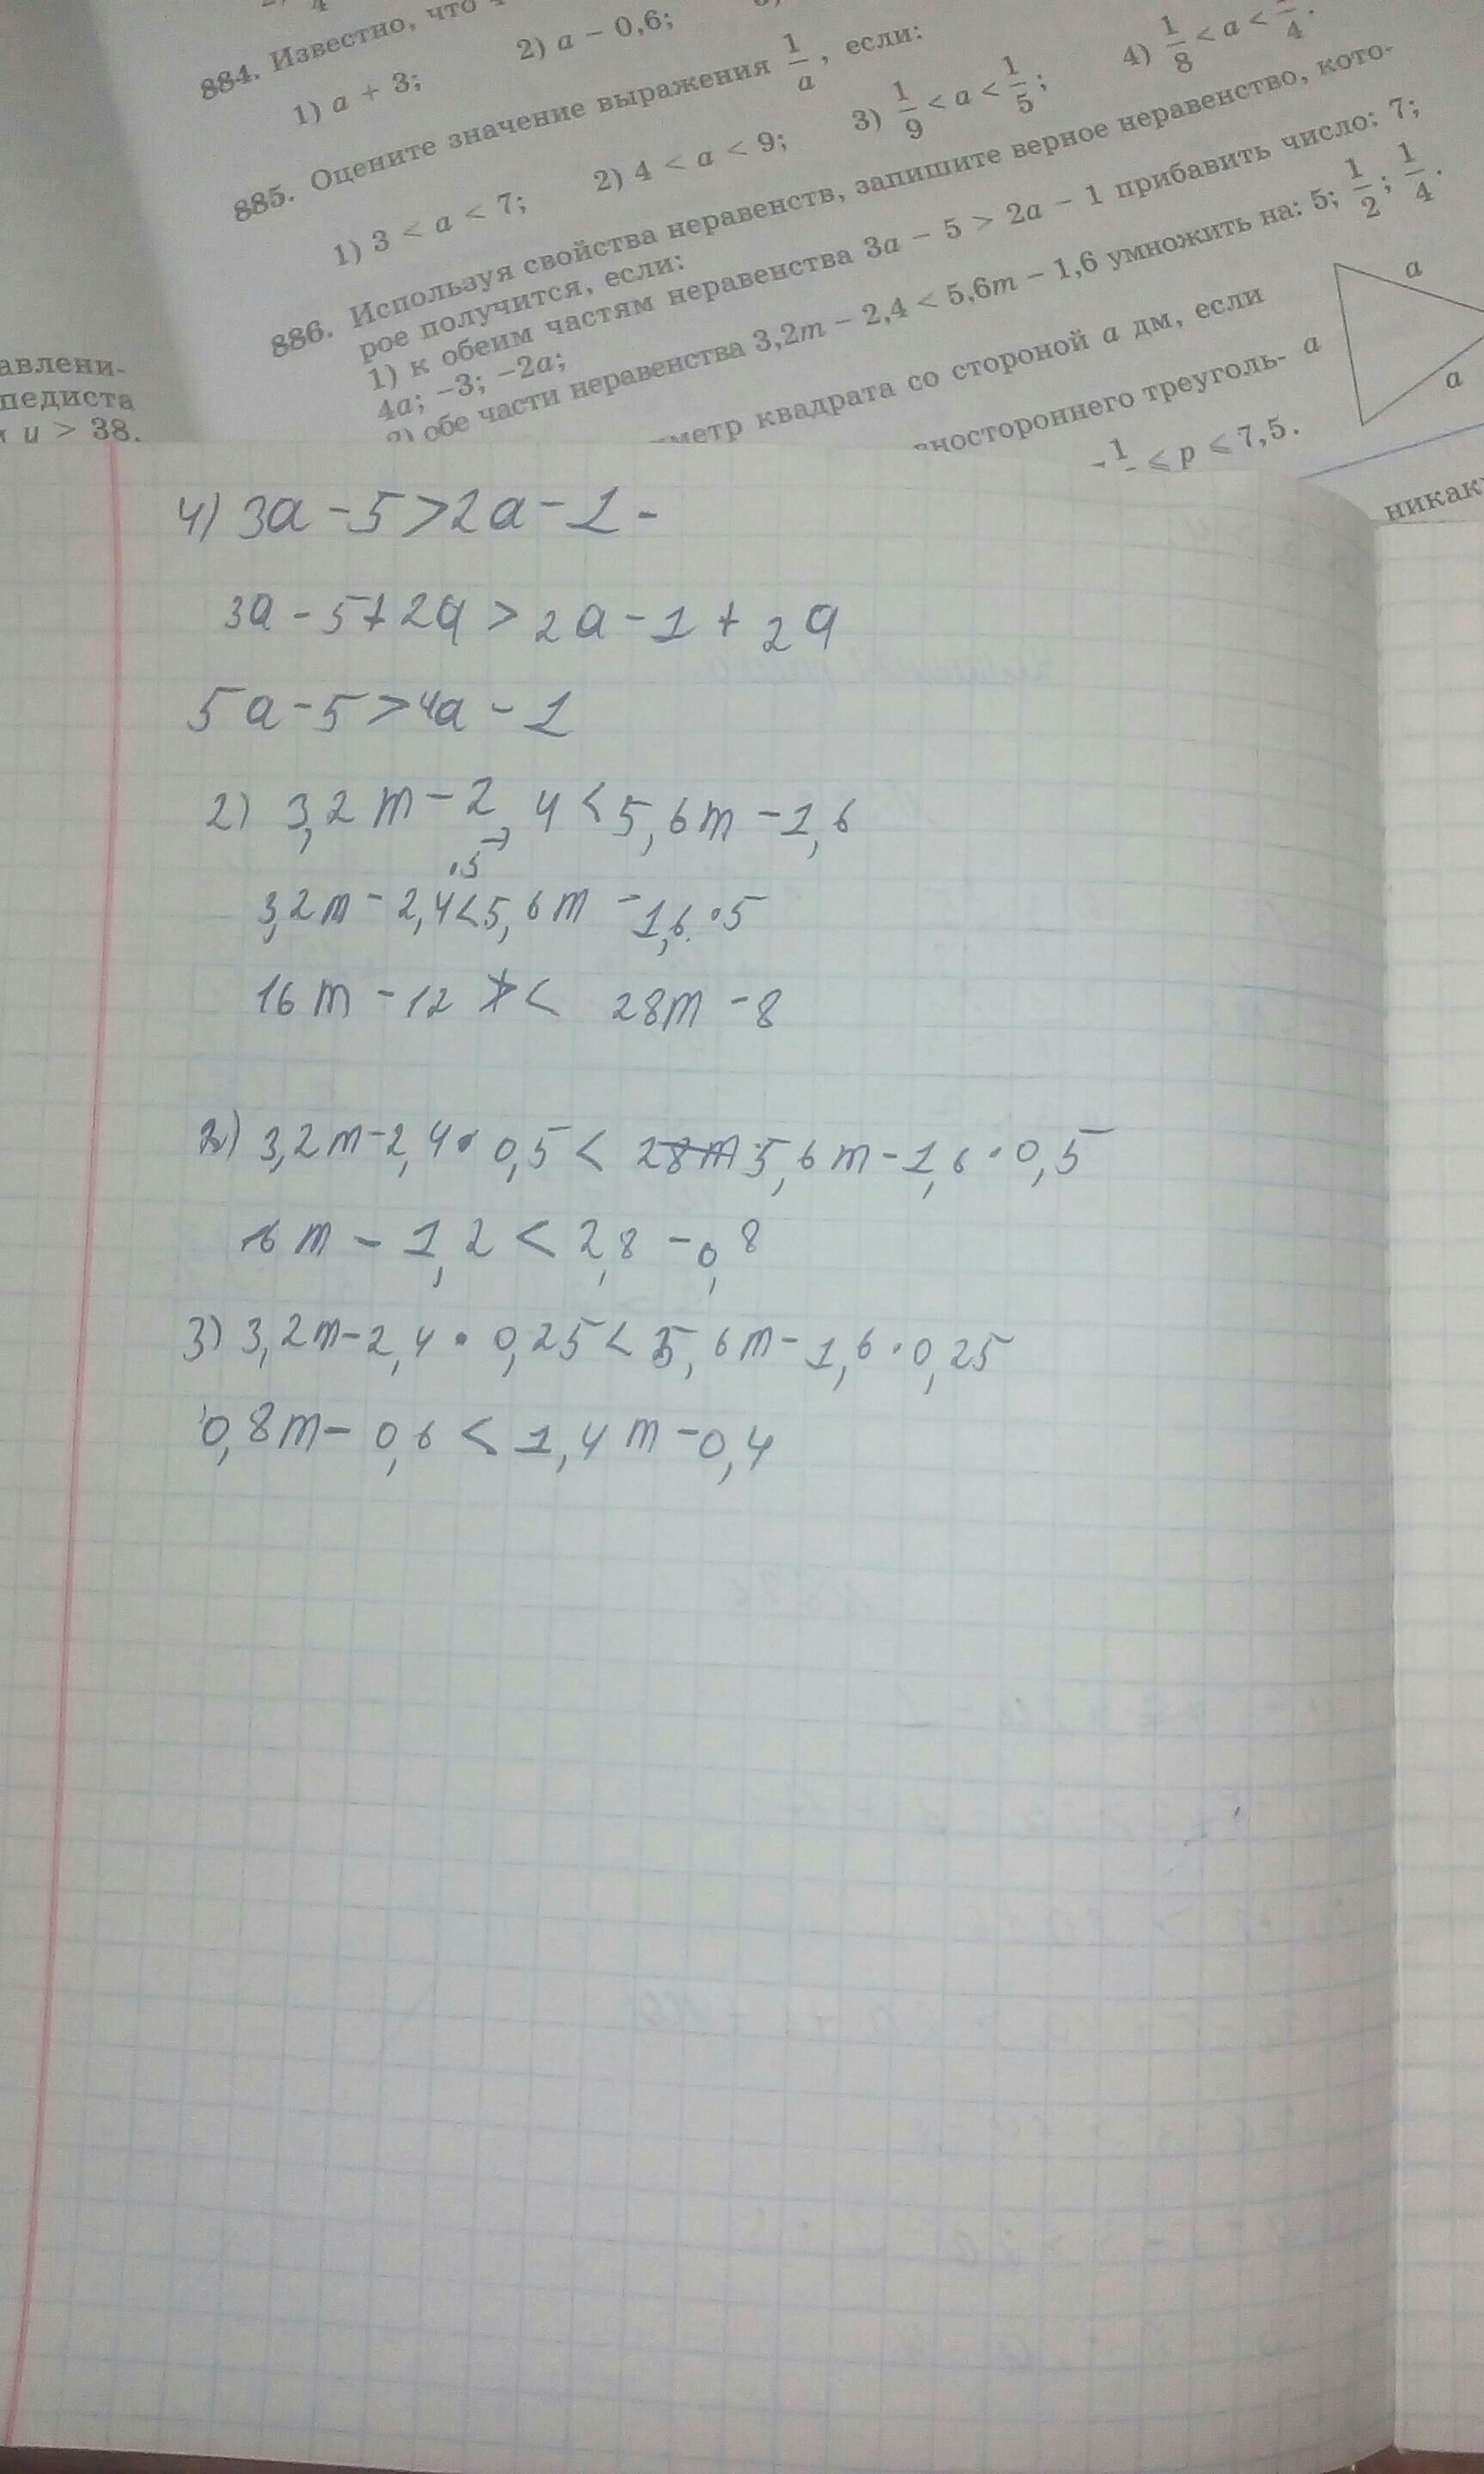 884. Известно, что
1) a + 3; 2) a − 0,6;
885. Оцените значение выражения 1/a, если:
1) 3 < a < 7; 2) 4 < a < 9; 3) 1/9 < a < 1/5; 4) 1/8 < a < 1/4.
886. Используя свойства неравенств, запишите верное неравенство, кото-
рое получится, если:
1) к обеим частям неравенства 3a − 5 > 2a − 1 прибавить число: 7;
4a; −3; −2a;
2) обе части неравенства 3,2m − 2,4 < 5,6m − 1,6 умножить на: 5; 1/2; 1/4.
метр квадрата со стороной a дм, если
вностороннего треуголь-
≤ p ≤ 7,5.
a
a
a
никак
авлени-
педиста
и u > 38.
4) 3a - 5 > 2a - 1 -
3a - 5 + 2a > 2a - 1 + 2a
5a - 5 > 4a - 1
2) 3,2m - 2,4 < 5,6m - 1,6
·5
3,2m - 2,4 < 5,6m - 1,6 · 5
16m - 12 < 28m - 8
2) 3,2m - 2,4 · 0,5 < 28m 5,6m - 1,6 · 0,5
16m - 1,2 < 2,8 - 0,8
3) 3,2m - 2,4 · 0,25 < 5,6m - 1,6 · 0,25
0,8m - 0,6 < 1,4m - 0,4